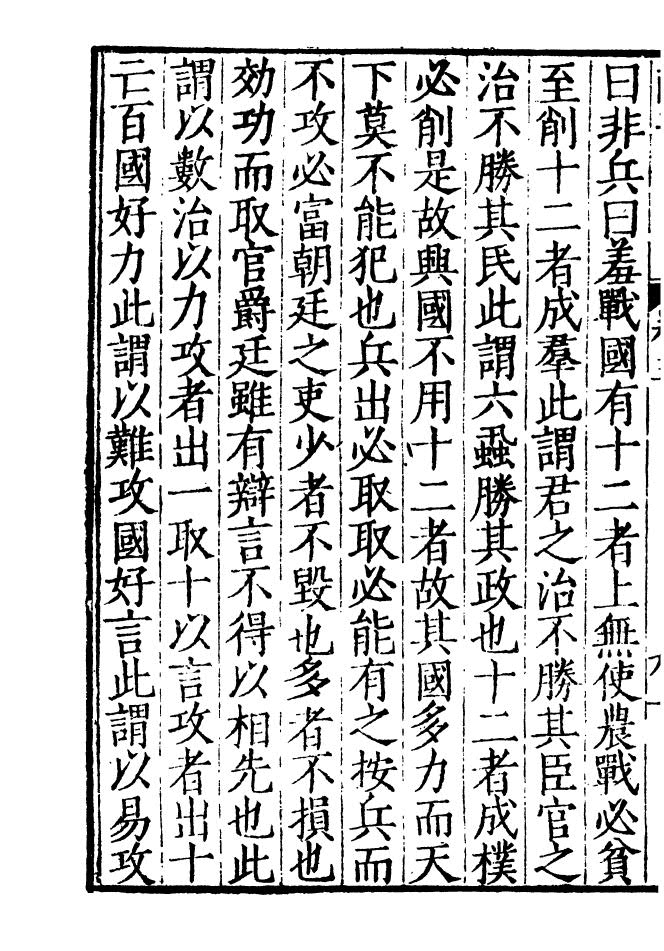 曰非兵曰羞戰國有十二者上無使農戰必貧
至削十二者成羣此謂君之治不勝其臣官之
治不勝其民此謂六蝨勝其政也十二者成樸
必削是故興國不用十二者故其國多力而天
下莫不能犯也兵出必取取必能有之按兵而
不攻必富朝廷之吏少者不毀也多者不損也
効功而取官爵廷雖有辯言不得以相先也此
謂以數治以力攻者出一取十以言攻者出十
亡百國好力此謂以難攻國好言此謂以易攻